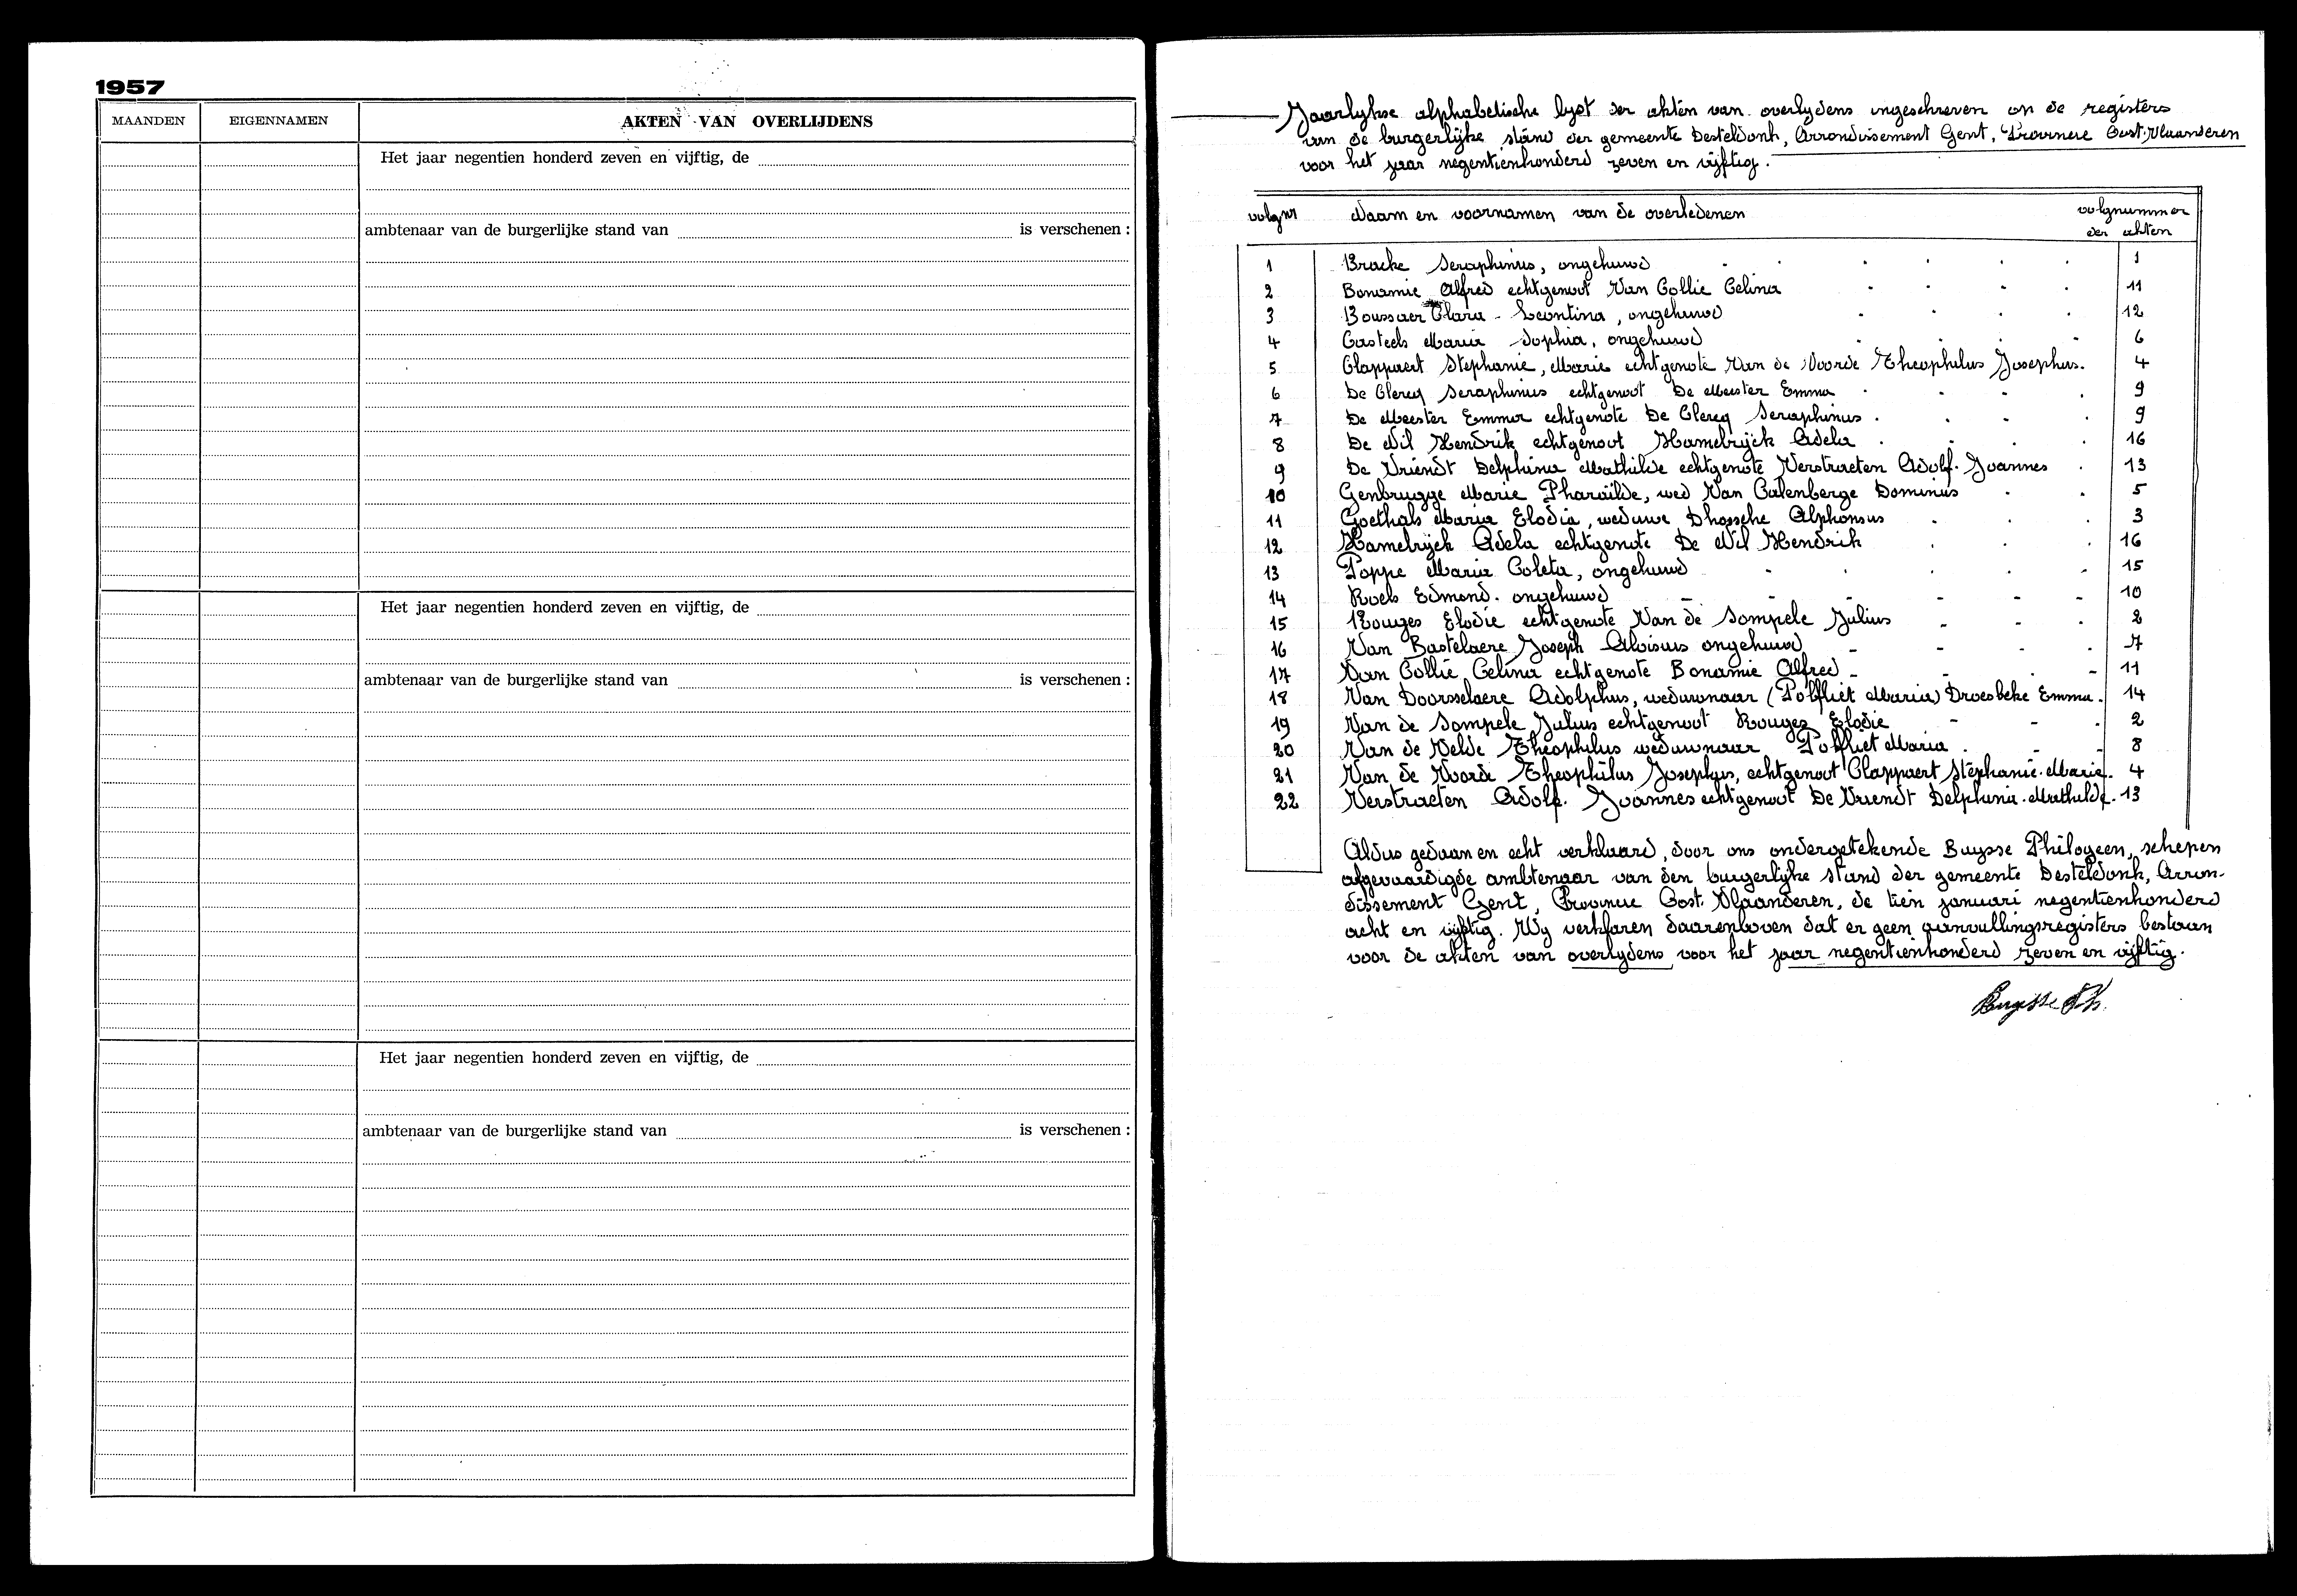 1957
MAANDEN EIGENNAMEN AKTEN VAN OVERLIJDENS
Het jaar negentien honderd zeven en vijftig, de
ambtenaar van de burgerlijke stand van is verschenen :
Het jaar negentien honderd zeven en vijftig, de
ambtenaar van de burgerlijke stand van is verschenen :
Het jaar negentien honderd zeven en vijftig, de
ambtenaar van de burgerlijke stand van is verschenen :
Jaarlykse alphabetische lyst der akten van overlydens ingeschreven on de registers
van de burgerlijke stand der gemeente Desteldonk, Arrondissement Gent, Provincie Oost-Vlaanderen
voor het jaar negentienhonderd zeven en vijftig.
volgnr Naam en voornamen van de overledenen volgnummer
der akten
1 Bracke Seraphinus, ongehuwd 1
2 Bonamie Alfred echtgenoot Van Collie Celina 11
3 Boussaer Clara - Leontina, ongehuwd 12
4 Casteels Maria Sophia, ongehuwd 6
5 Clappaert Stephanie, Marie echtgenote Van de Voorde Theophilus Josephus. 4
6 De Clercq Seraphinus echtgenoot De Meester Emma 9
7 De Meester Emma echtgenote De Clercq Seraphinus 9
8 De Wil Hendrik echtgenoot Hamelryck Adela 16
9 De Vriendt Delphina Mathilde echtgenote Verstraeten Adolf. Joannes 13
10 Genbrugge Marie Pharaïlde, wed Van Calenberge Dominus 5
11 Goethals Maria Elodia, weduwe Dhossche Alphonsus 3
12 Hamelryck Adela echtgenote De Wil Hendrik 16
13 Poppe Maria Coleta, ongehuwd 15
14 Roels Edmond. ongehuwd 10
15 Rouges Elodie echtgenote Van de Sompele Julius 2
16 Van Bastelaere Joseph Aloisius ongehuwd 7
17 Van Collie Celina echtgenote Bonamie Alfred 11
18 Van Doorsselaere Adolphus, weduwnaar (Polfliet Maria) Droesbeke Emma. 14
19 Van de Sompele Julius echtgenoot Rouges Elodie 2
20 Van de Velde Theophilus weduwnaar Polfliet Maria 8
21 Van de Voorde Theophilus Josephus, echtgenoot Clappaert Stephanie. Marie. 4
22 Verstraeten Adolf. Joannes echtgenoot De Vriendt Delphina. Mathilde. 13
Aldus gedaan en echt verklaard, door ons ondergetekende Buysse Philogeen, schepen
afgevaardigde ambtenaar van den burgerlyke stand der gemeente Desteldonk, Arron-
dissement Gent, Provincie Oost. Vlaanderen, de tien januari negentienhonderd
acht en vijftig. Wy verklaren daarenboven dat er geen aanvullingsregisters bestaan
voor de akten van overlydens voor het jaar negentienhonderd zeven en vijftig.
Buysse Ph.